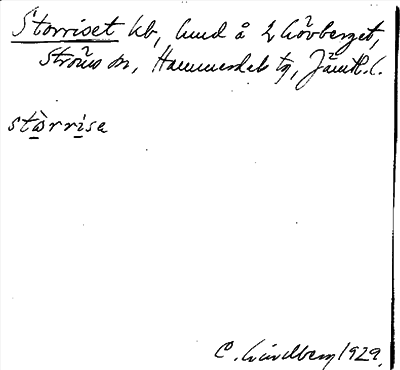 Storriset kb, hmd å Lövberget,
Ströms sn, Hammerdals tg, Jämtl. l.
stòrrisa
C. Lindberg 1929.